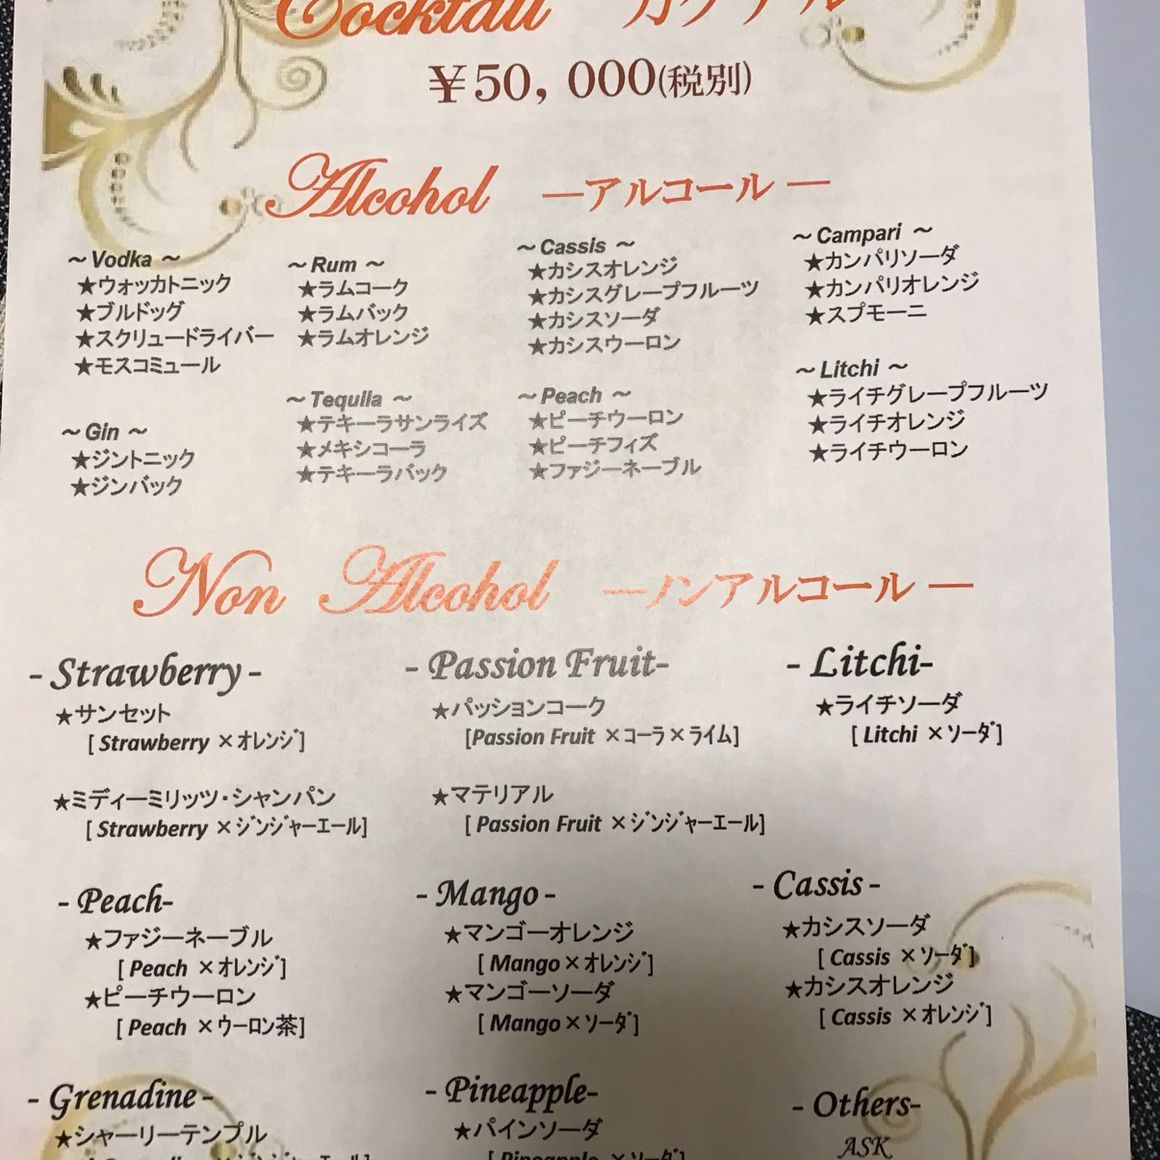 Cocktail カクテル
￥50，000(税別)
Alcohol ―アルコール ―
～ Vodka ～
★ウォッカトニック
★ブルドッグ
★スクリュードライバー
★モスコミュール
～ Gin ～
★ジントニック
★ジンバック
～ Rum ～
★ラムコーク
★ラムバック
★ラムオレンジ
～ Tequila ～
★テキーラサンライズ
★メキシコーラ
★テキーラバック
～ Cassis ～
★カシスオレンジ
★カシスグレープフルーツ
★カシスソーダ
★カシスウーロン
～ Peach ～
★ピーチウーロン
★ピーチフィズ
★ファジーネーブル
～ Campari ～
★カンパリソーダ
★カンパリオレンジ
★スプモーニ
～ Litchi ～
★ライチグレープフルーツ
★ライチオレンジ
★ライチウーロン
Non Alcohol ―ノンアルコール ―
- Strawberry -
★サンセット
[ Strawberry ×オレンジ]
★ミディーミリッツ・シャンパン
[ Strawberry ×ジンジャーエール]
- Passion Fruit-
★パッションコーク
[Passion Fruit ×コーラ×ライム]
★マテリアル
[ Passion Fruit ×ジンジャーエール]
- Litchi-
★ライチソーダ
[ Litchi ×ソーダ]
- Peach-
★ファジーネーブル
[ Peach ×オレンジ]
★ピーチウーロン
[ Peach ×ウーロン茶]
- Mango -
★マンゴーオレンジ
[ Mango×オレンジ]
★マンゴーソーダ
[ Mango×ソーダ]
- Cassis -
★カシスソーダ
[ Cassis ×ソーダ]
★カシスオレンジ
[ Cassis ×オレンジ]
- Grenadine -
★シャーリーテンプル
- Pineapple-
★パインソーダ
[ Pineapple ×ソーダ]
- Others-
ASK